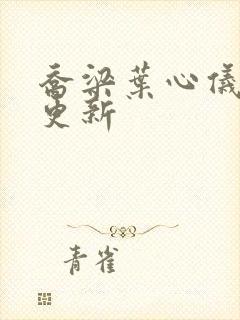 乔梁葉心儀
更新
青雀